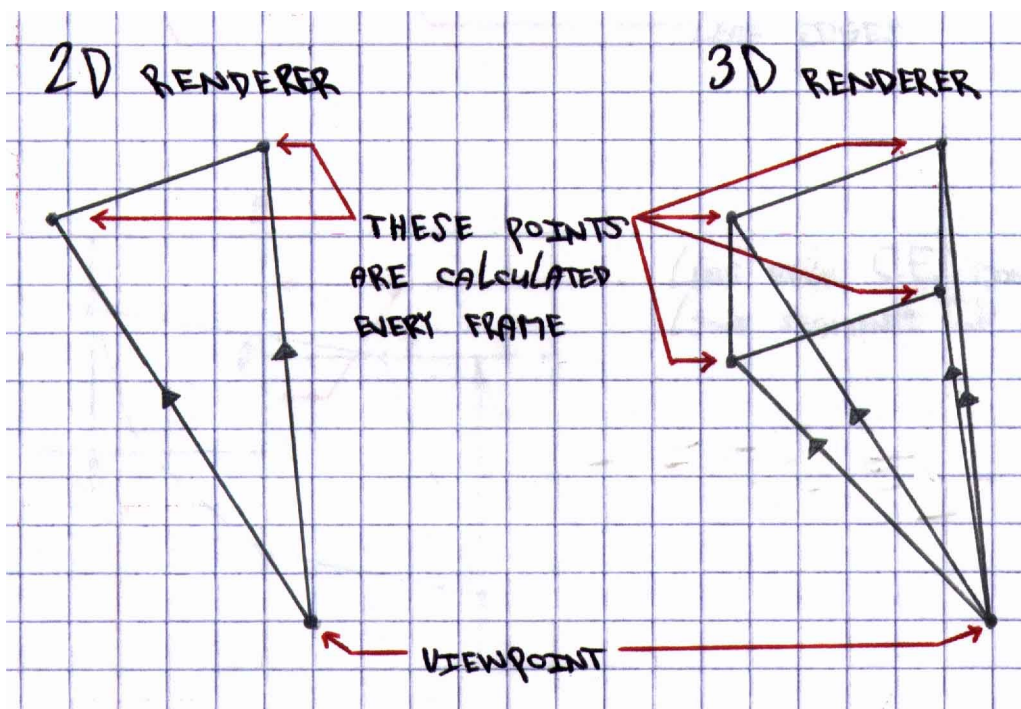 2D RENDERER
3D RENDERER
THESE POINTS
ARE CALCULATED
EVERY FRAME
VIEWPOINT